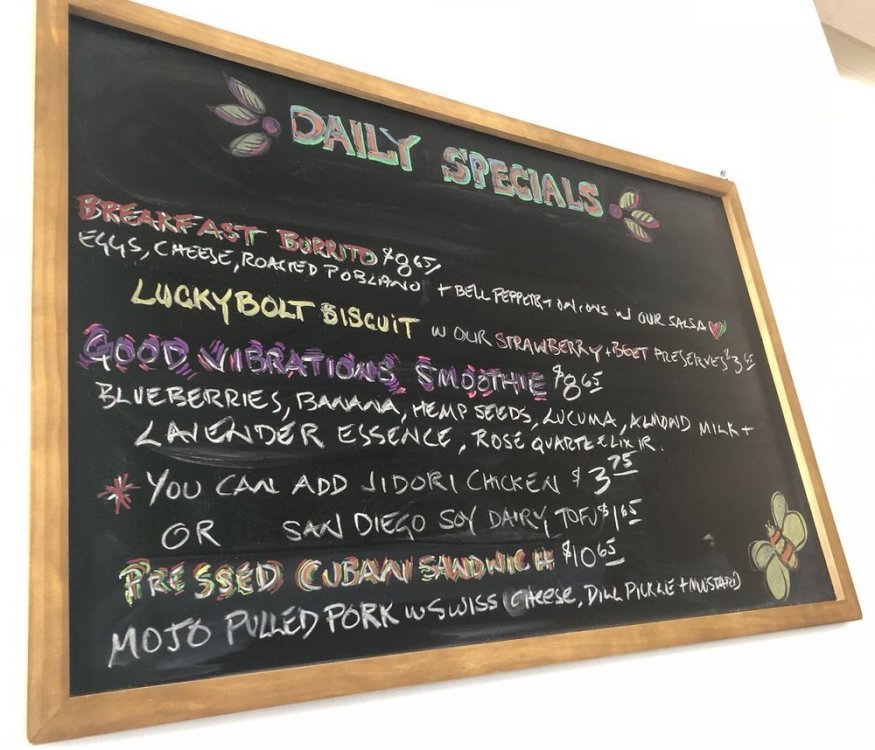 DAILY SPECIALS
BREAKFAST BURRITO $8.65
EGGS, CHEESE, ROASTED POBLANO + BELL PEPPERS + ONIONS W OUR SALSA
LUCKYBOLT BISCUIT W OUR STRAWBERRY + BEET PRESERVES $3.65
GOOD VIBRATIONS SMOOTHIE $8.65
BLUEBERRIES, BANANA, HEMP SEEDS, LUCUMA, ALMOND MILK +
LAVENDER ESSENCE, ROSE QUARTZ ELIXIR.
* YOU CAN ADD JIDORI CHICKEN $3.75
OR SAN DIEGO SOY DAIRY TOFU $1.65
PRESSED CUBAN SANDWICH $10.65
MOJO PULLED PORK W SWISS CHEESE, DILL PICKLE + MUSTARD